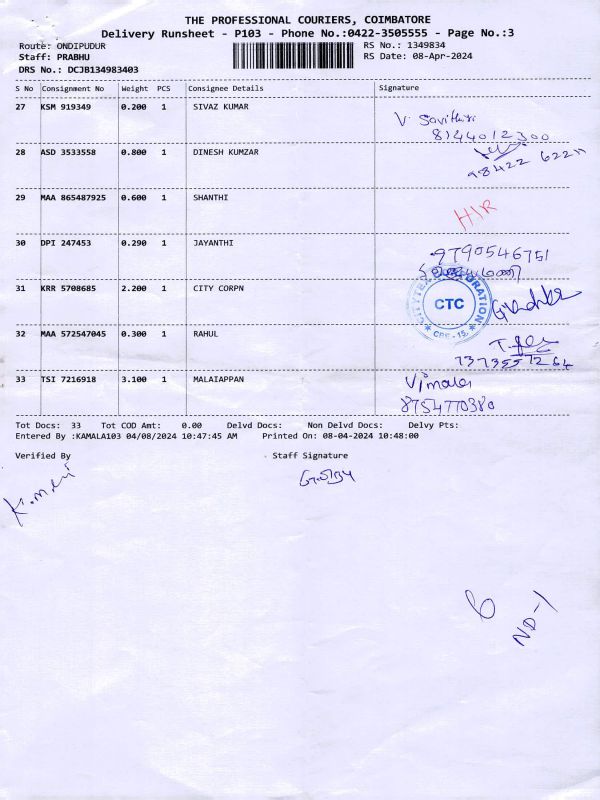 THE PROFESSIONAL COURIERS, COIMBATORE
Delivery Runsheet - P103 - Phone No.:0422-3505555 - Page No.:3
Route: ONDIPUDUR RS No.: 1349834
Staff: PRABHU RS Date: 08-Apr-2024
DRS No.: DCJB134983403
S No Consignment No Weight PCS Consignee Details Signature
27 KSM 919349 0.200 1 SIVAZ KUMAR
V. Savithiri
8144012300
28 ASD 3533558 0.800 1 DINESH KUMZAR
98422 62211
29 MAA 865487925 0.600 1 SHANTHI
H/R
30 DPI 247453 0.290 1 JAYANTHI
9790546751
31 KRR 5708685 2.200 1 CITY CORPN
CTC
32 MAA 572547045 0.300 1 RAHUL
7373557264
33 TSI 7216918 3.100 1 MALAIAPPAN
Vimala
8754770380
Tot Docs: 33 Tot COD Amt: 0.00 Delvd Docs: Non Delvd Docs: Delvy Pts:
Entered By :KAMALA103 04/08/2024 10:47:45 AM Printed On: 08-04-2024 10:48:00
Verified By Staff Signature
6
ND-1